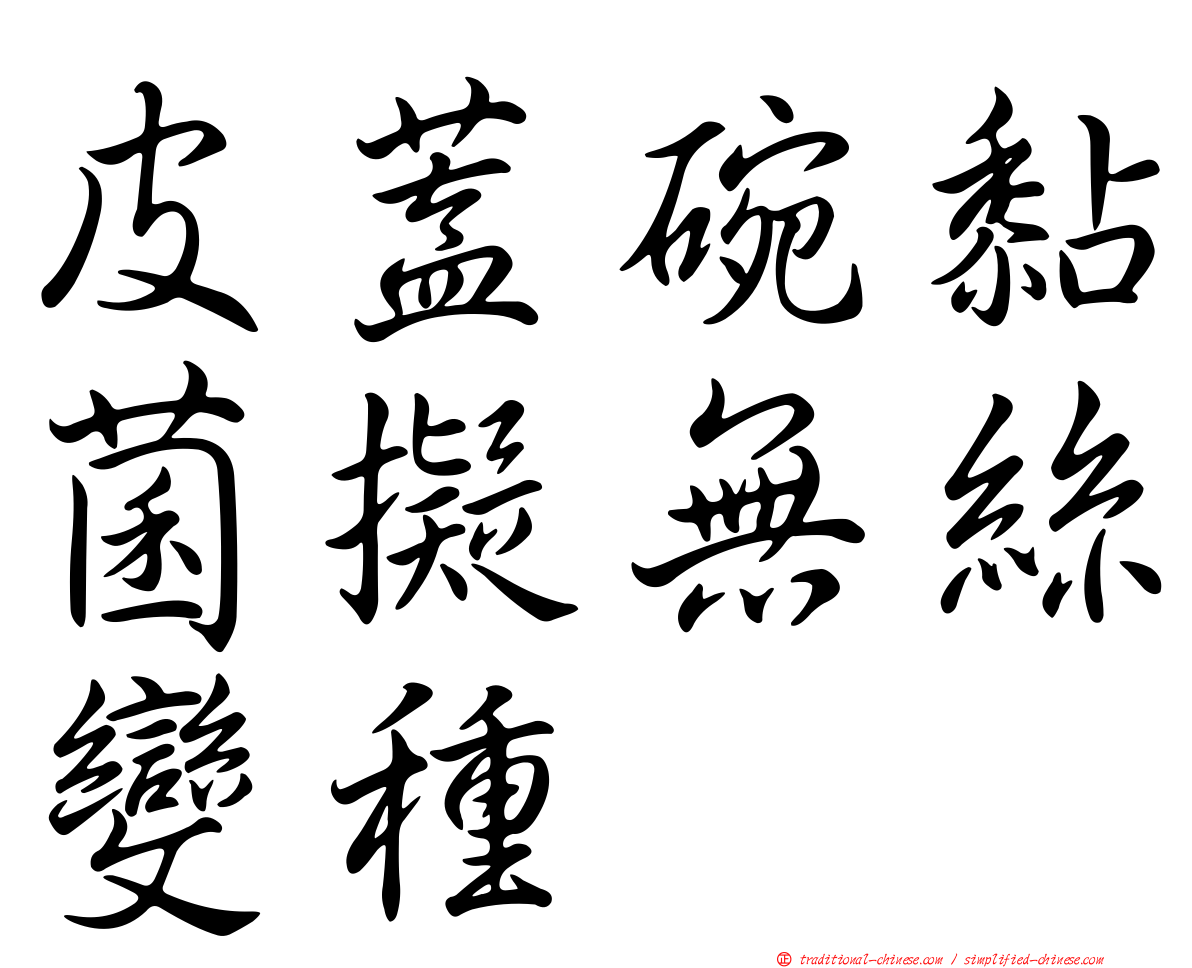 皮蓋碗黏
菌擬無絲
變種
正 traditional-chinese.com / simplified-chinese.com